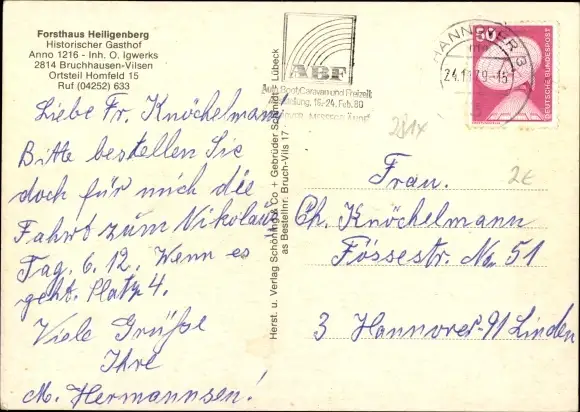 Forsthaus Heiligenberg
Historischer Gasthof
Anno 1216 - Inh. O. Igwerks
2814 Bruchhausen-Vilsen
Ortsteil Homfeld 15
Ruf (04252) 633
Liebe Fr. Knöchelmann!
Bitte bestellen Sie
doch für mich die
Fahrt zum Nikolaus
Tag. 6.12. Wenn es
geht. Platz 4.
Viele Grüße
Ihre
M. Hermannsen!
Herst. u. Verlag Schöning & Co + Gebrüder Schmidt - Lübeck
as Bestellnr. Bruch-Vils 17
ABF
Auto, Boot, Caravan und Freizeit
Ausstellung, 16.-24. Feb. 80
HANNOVER
24.11.79-15
50
DEUTSCHE BUNDESPOST
2€
Frau.
Ch. Knöchelmann
Fössestr. No. 51
3 Hannover-91 Linden